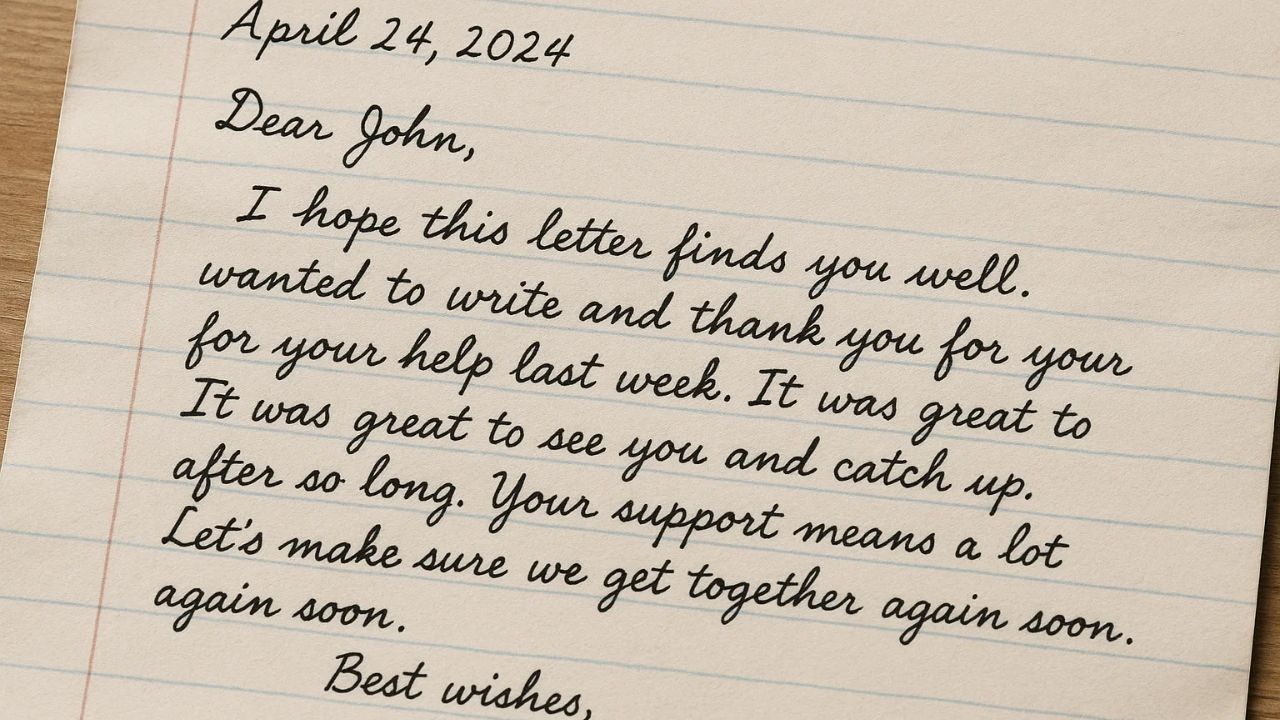 April 24, 2024
Dear John,
I hope this letter finds you well.
wanted to write and thank you for your
for your help last week. It was great to
It was great to see you and catch up.
after so long. Your support means a lot
Let's make sure we get together again soon.
again soon.
Best wishes,